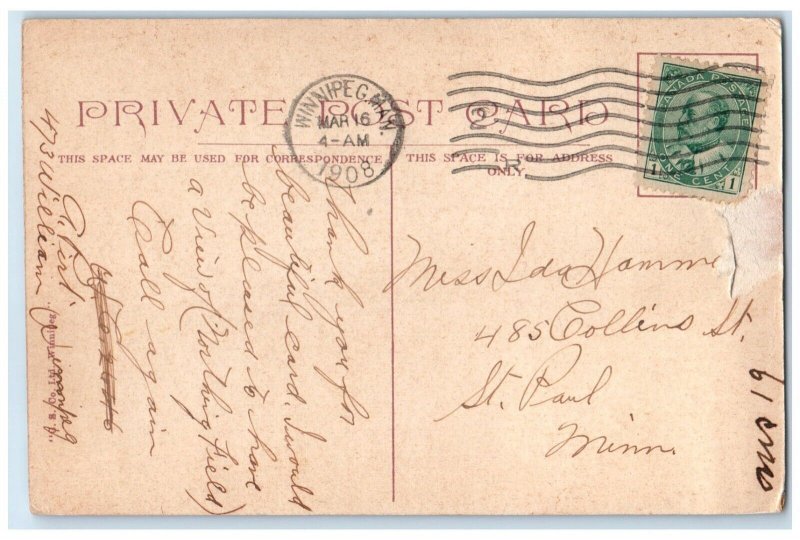 PRIVATE POST CARD
THIS SPACE MAY BE USED FOR CORRESPONDENCE
THIS SPACE IS FOR ADDRESS
ONLY
WINNIPEG, MAN.
MAR 16
4-AM
1908
CANADA POSTAGE
1 ONE CENT 1
Miss Ida Hamme
485 Collins St.
St. Paul
Minn.
Thank you for
beautiful card. I would
be pleased to have
a view of (Northing Field)
Call again
473 William
Winnipeg